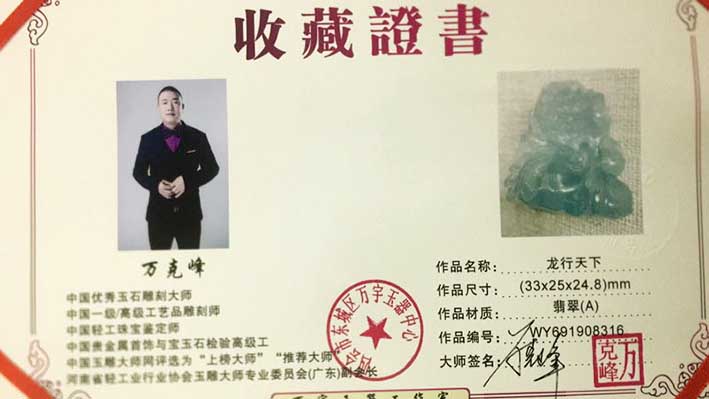 收藏證書
万克峰
中国优秀玉石雕刻大师
中国一级/高级工艺品雕刻师
中国轻工珠宝鉴定师
中国贵金属首饰与宝玉石检验高级工
中国玉雕大师网评选为“上榜大师”“推荐大师”
河南省轻工业行业协会玉雕大师专业委员会(广东)副会长
作品名称: 龙行天下
作品尺寸: (33x25x24.8)mm
作品材质: 翡翠(A)
作品编号: WY691908316
大师签名:
万克峰
市东城区万宇玉器中心